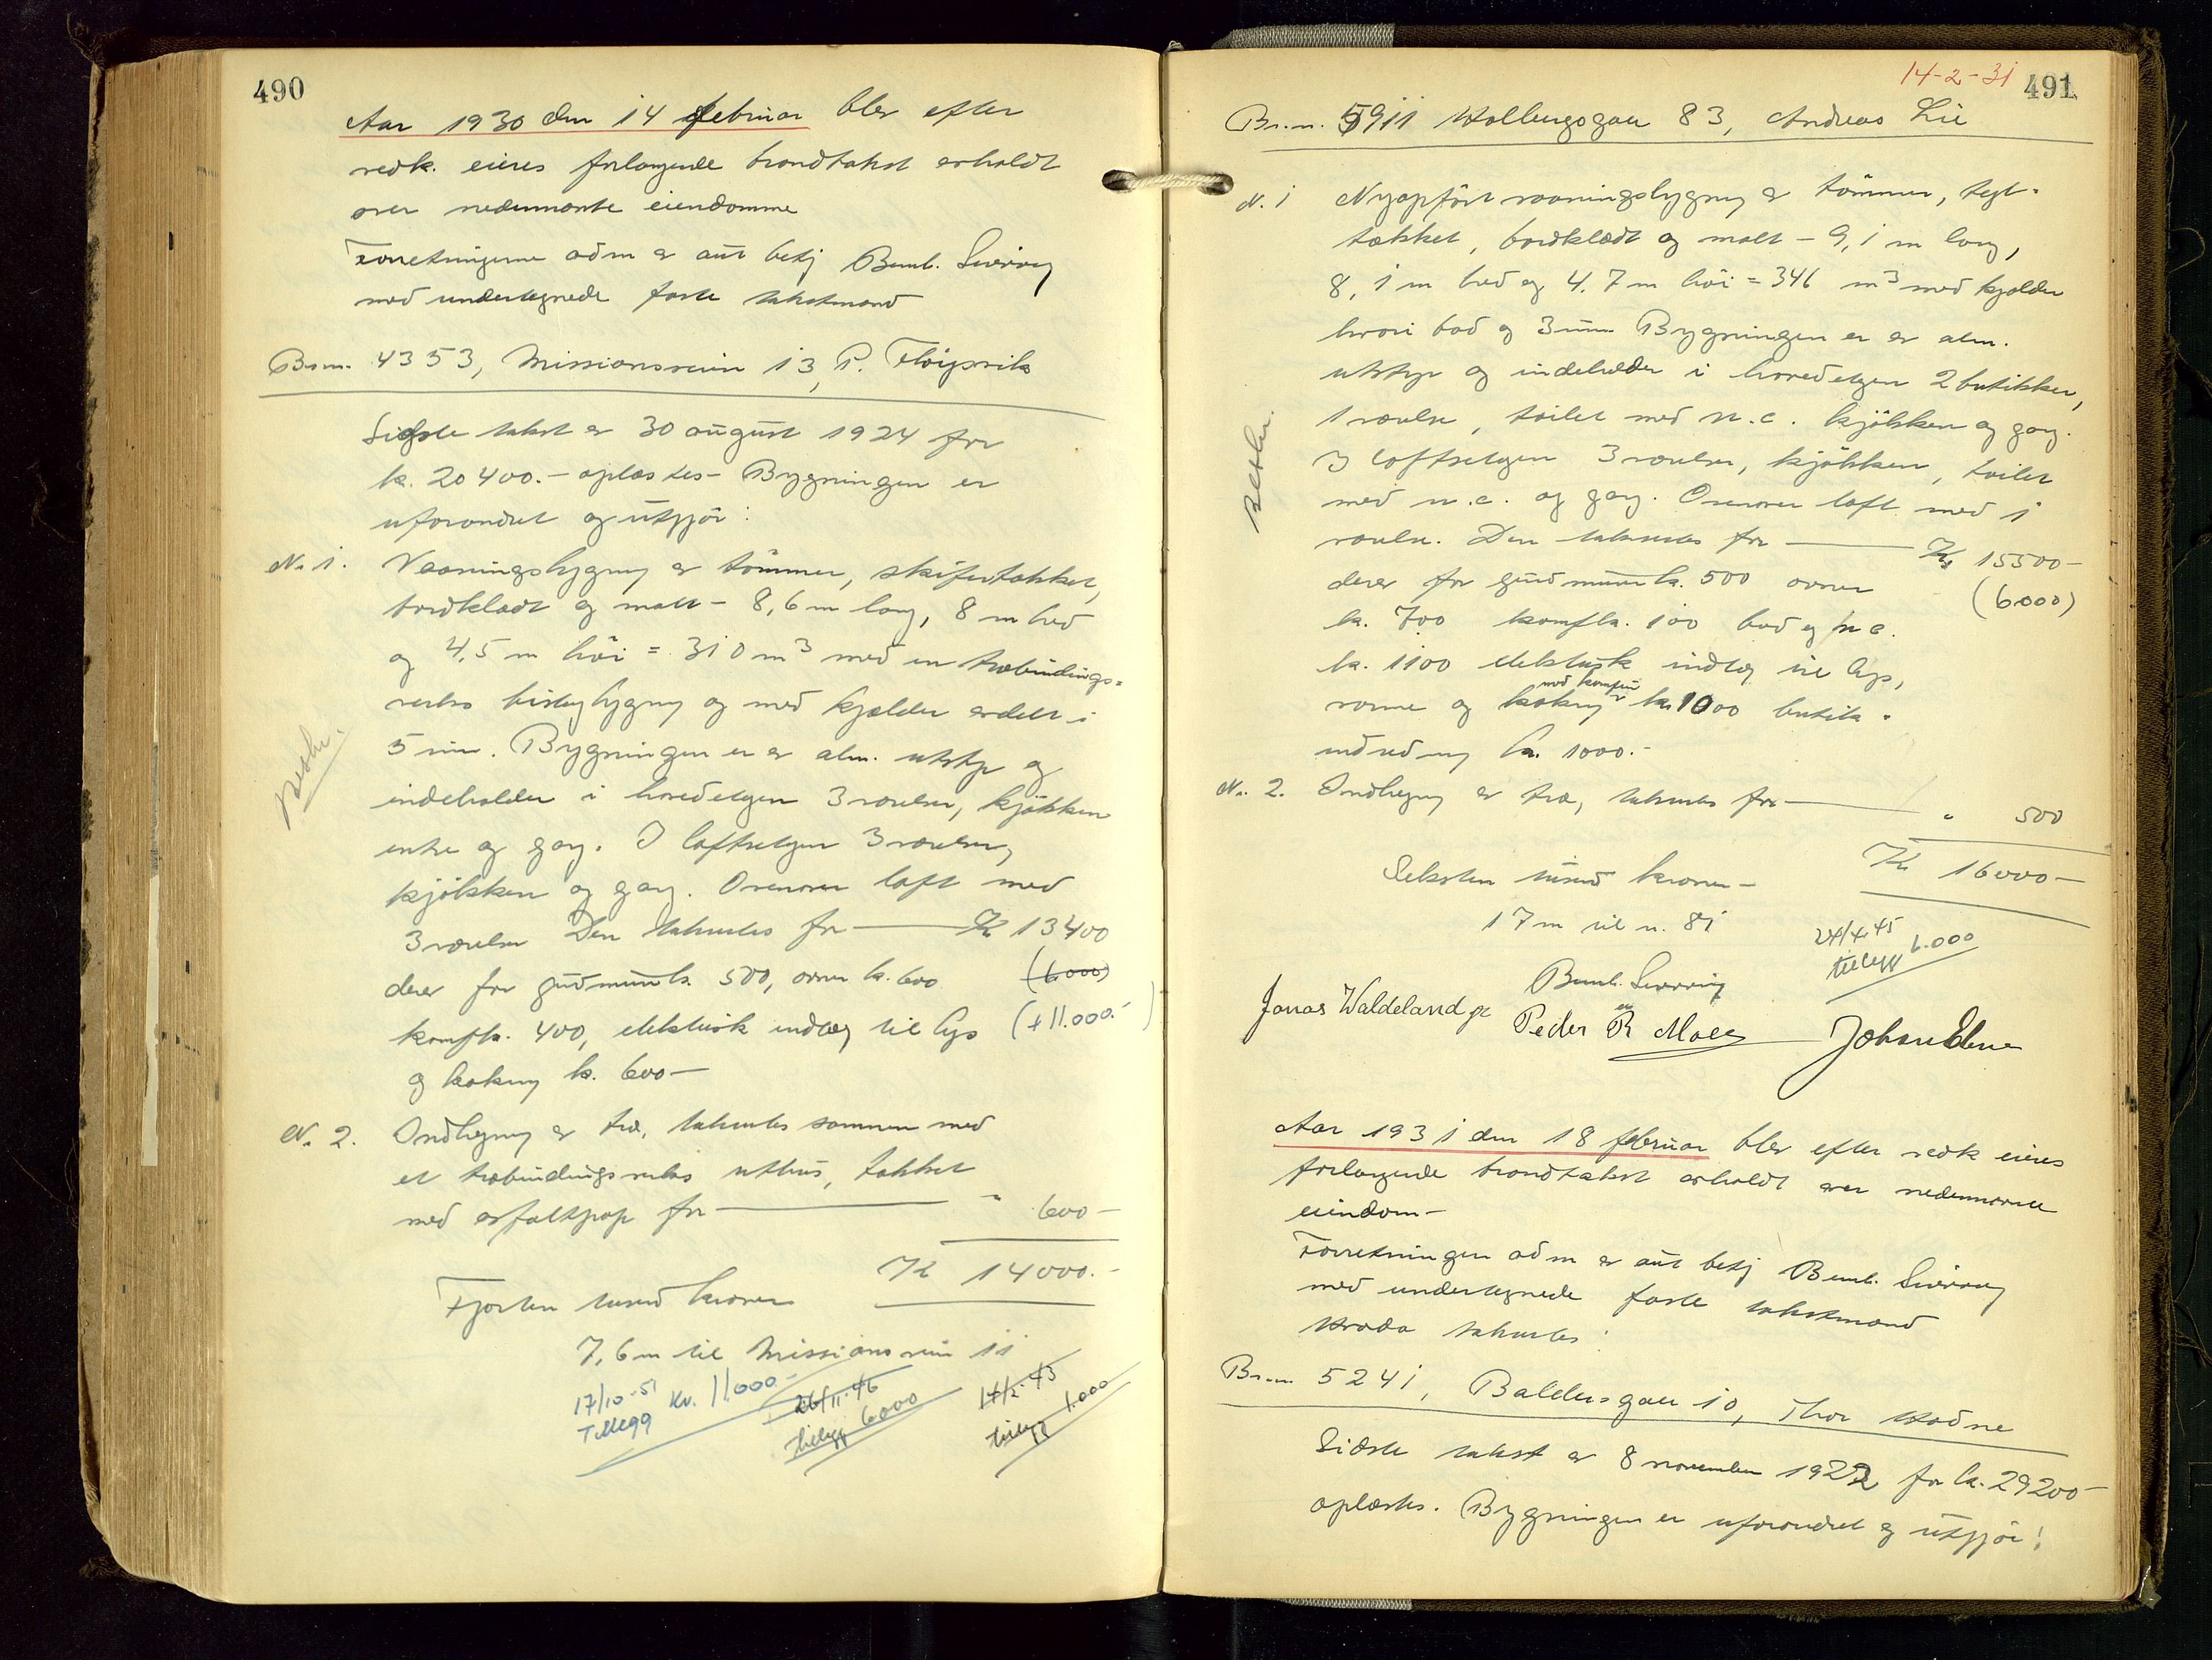 490
Aar 1930 den 14 februar blev efter
vedk. eieres forlangende brandtakst avholdt
over nedennævnte eiendomme
Forretningerne adm av aut betj Bernh. Sverdrup
med undertegnede faste takstmænd
Br.nr. 4353, Missionsveien 13, P. Fløysvik
Sidste takst av 30 august 1924 for
kr. 20400.- oplæstes- Bygningen er
uforandret og utgjör:
No 1. Vaaningsbygning av tömmer, skifertækket,
bordklædt og malt - 8,6 m lang, 8 m bred
og 4,5 m höi = 310 m3 med en træbindings=
verks bislagbygning og med kjælder avdelt i
5 rum. Bygningen er av alm. utstyr og
indeholder i hovedetagen 3 værelser, kjökken
entre og gang. I loftsetagen 3 værelser,
kjökken og gang. Ovenover loft med
3 værelser Den taksertes for Kr 13400
derav for grundmur kr. 500, ovner kr. 600 (6000)
komf kr. 400, elektrisk indlæg til lys (+11.000.-)
og kokning kr. 600-
Nedskr.
No. 2. Indhegning av træ, taksertes sammen med
et træbindingsverks uthus, tækket
med asfaltpap for " 600-
Kr 14000.-
Fjorten tusend kroner
7,6 m til Missionsveien 11
17/10-51 Kr. 11.000.-
Tillegg
26/11-46
tillegg 6000
14/2-43
tillegg 1.000
14-2-31 491
Br.nr. 5911 Holbergsgate 83, Andreas Lie
No. 1 Nyopfört vaaningsbygning av tömmer, tegl=
tækket, bordklædt og malt - 9,1 m lang,
8,1 m bred og 4,7 m höi = 346 m3 med kjælder
hvori bad og 3 rum Bygningen er av alm.
utstyr og indeholder i hovedetagen 2 butikker,
1 værelse, toilet med w.c. kjökken og gang.
I loftsetagen 3 værelser, kjökken, toilet
med w.c. og gang. Ovenover loft med 1
værelse. Den taksertes for Kr 15500-
derav for grundmur kr. 500 ovner (6000)
kr. 700 komf kr. 100 bad og w c.
kr. 1100 elektrisk indlæg til lys,
varme og kokning med komfur kr. 1000 butik=
indredning kr. 1000.-
Nedskr.
No. 2. Indhegning av træ, taksertes for " 500
Kr 16000-
Seksten tusend kroner-
17 m til n. 81
24/4.45
tillegg 6.000
Bernh. Sverdrup
Jonas Waldeland jr Peder R Moen Johan Elene
Aar 1931 den 18 februar blev efter vedk eieres
forlangende brandtakst avholdt over nedennævnte
eiendom-
Forretningen adm av aut betj Bernh. Sverdrup
med undertegnede faste takstmænd
Hvorda taksertes:
Br.nr. 5241, Baldersgate 10, Thor Hadne
Sidste takst av 8 november 1922 for kr. 29200-
oplæstes. Bygningen er uforandret og utgjör: